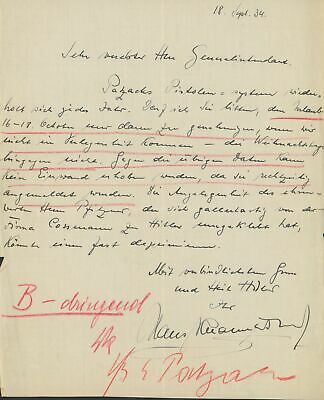 18. Sept. 34.
Sehr verehrter Herr Generalintendant
Patzacks Pistolen-system wieder-
holt sich jedes Jahr. Darf ich Sie bitten, den Urlaub
16-19. Oktober nur dann zu genehmigen, wenn wir
nicht in Verlegenheit kommen - die Weihnachtstage
hingegen nicht. Gegen die übrigen Daten kann
kein Einwand erhoben werden, da sie rechtzeitig
angemeldet wurden. Die Angelegenheit des ehren-
werten Herrn Pfitzner, der sich gallenbartig von der
Firma Cossmann zu Hitler umgeklebt hat,
könnte einen fast deprimieren.
Mit verbindlichstem Gruss
und Heil Hitler
Ihr
Hans Knappertsbusch
B - dringend
Patzak